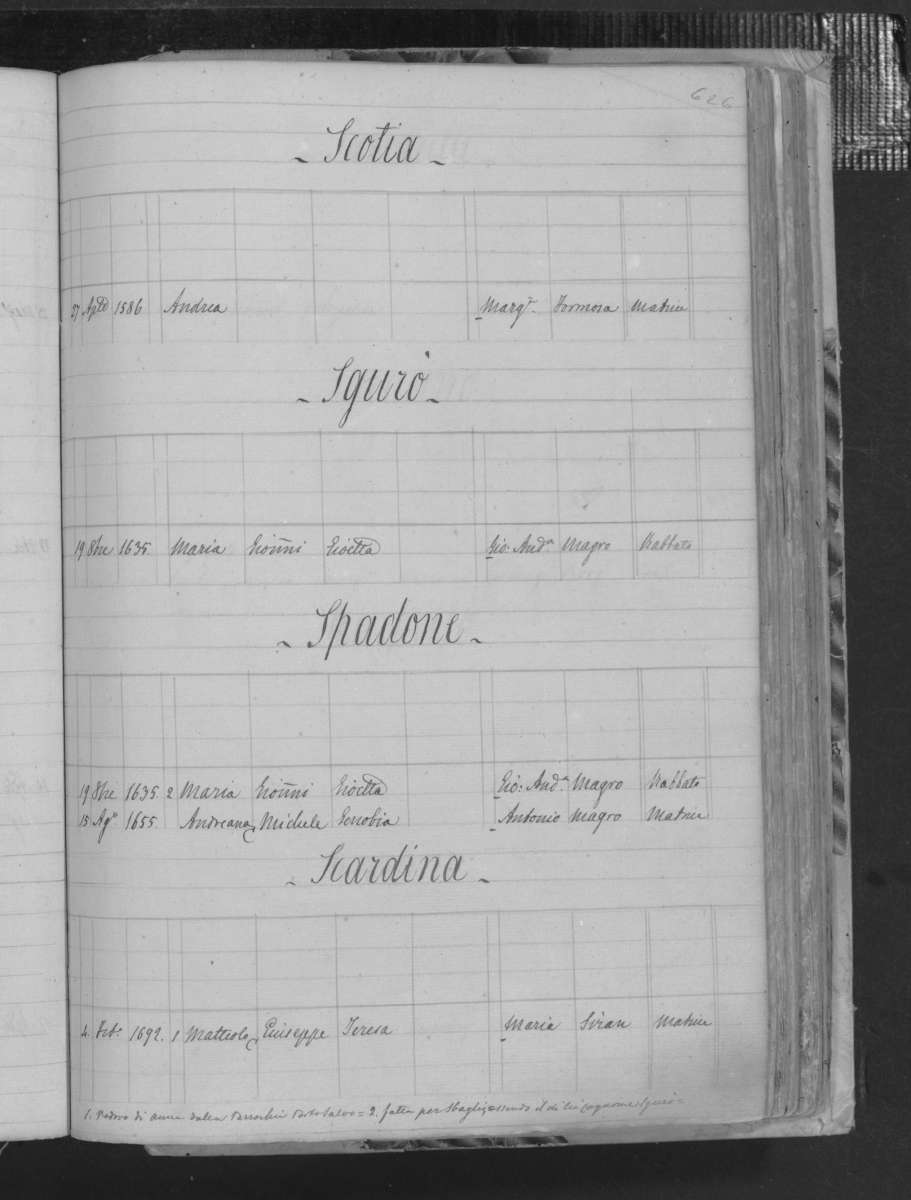 626
- Scotia -
27 Aple 1586 Andrea Margta. Formosa Matrice
- Sgurò -
19 8bre 1635 Maria Gioñni Gioetta Gio: Anda Magro Rabbato
- Spadone -
19 8bre 1635 2 Maria Gioñni Gioetta Gio: Anda Magro Rabbato
15 Agto 1655. Andreana Michele Senobia Antonio Magro Matrice
- Scardina -
4. Feb. 1692. 1 Matteolo Giuseppe Teresa Maria Siran Matrice
1. Vedovo di Anna dalla Parrochia Porto Salvo = 2. fatta per sbaglio essendo il di lei cognome Sgurò =